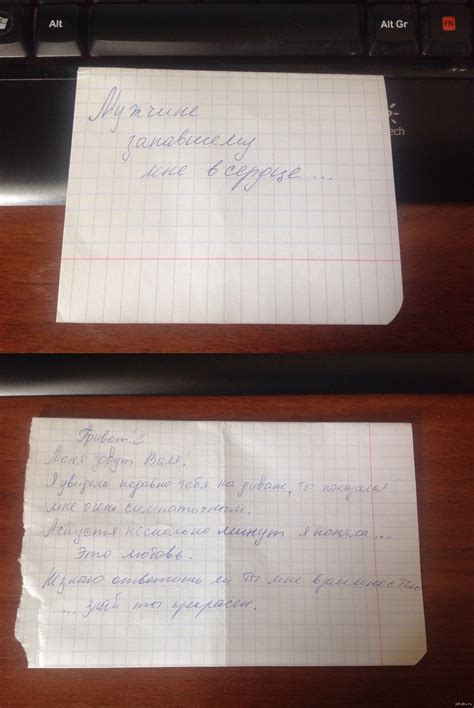 Alt
Alt Gr
Мужчине
запавшему
мне в сердце...
tech
Привет!
Меня зовут Валя!
Я увидела недавно тебя на диване, ты показался
мне очень симпатичным.
А спустя несколько минут я поняла...
Это любовь.
Не знаю ответишь ли ты мне взаимностью
... знай ты прекрасен.